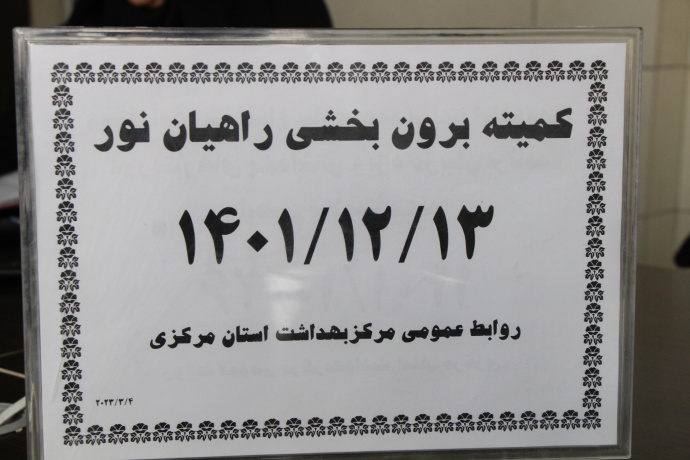 کمیته برون بخشی راهیان نور
۱۴۰۱/۱۲/۱۳
روابط عمومی مرکزبهداشت استان مرکزی
۲۰۲۳/۳/۴